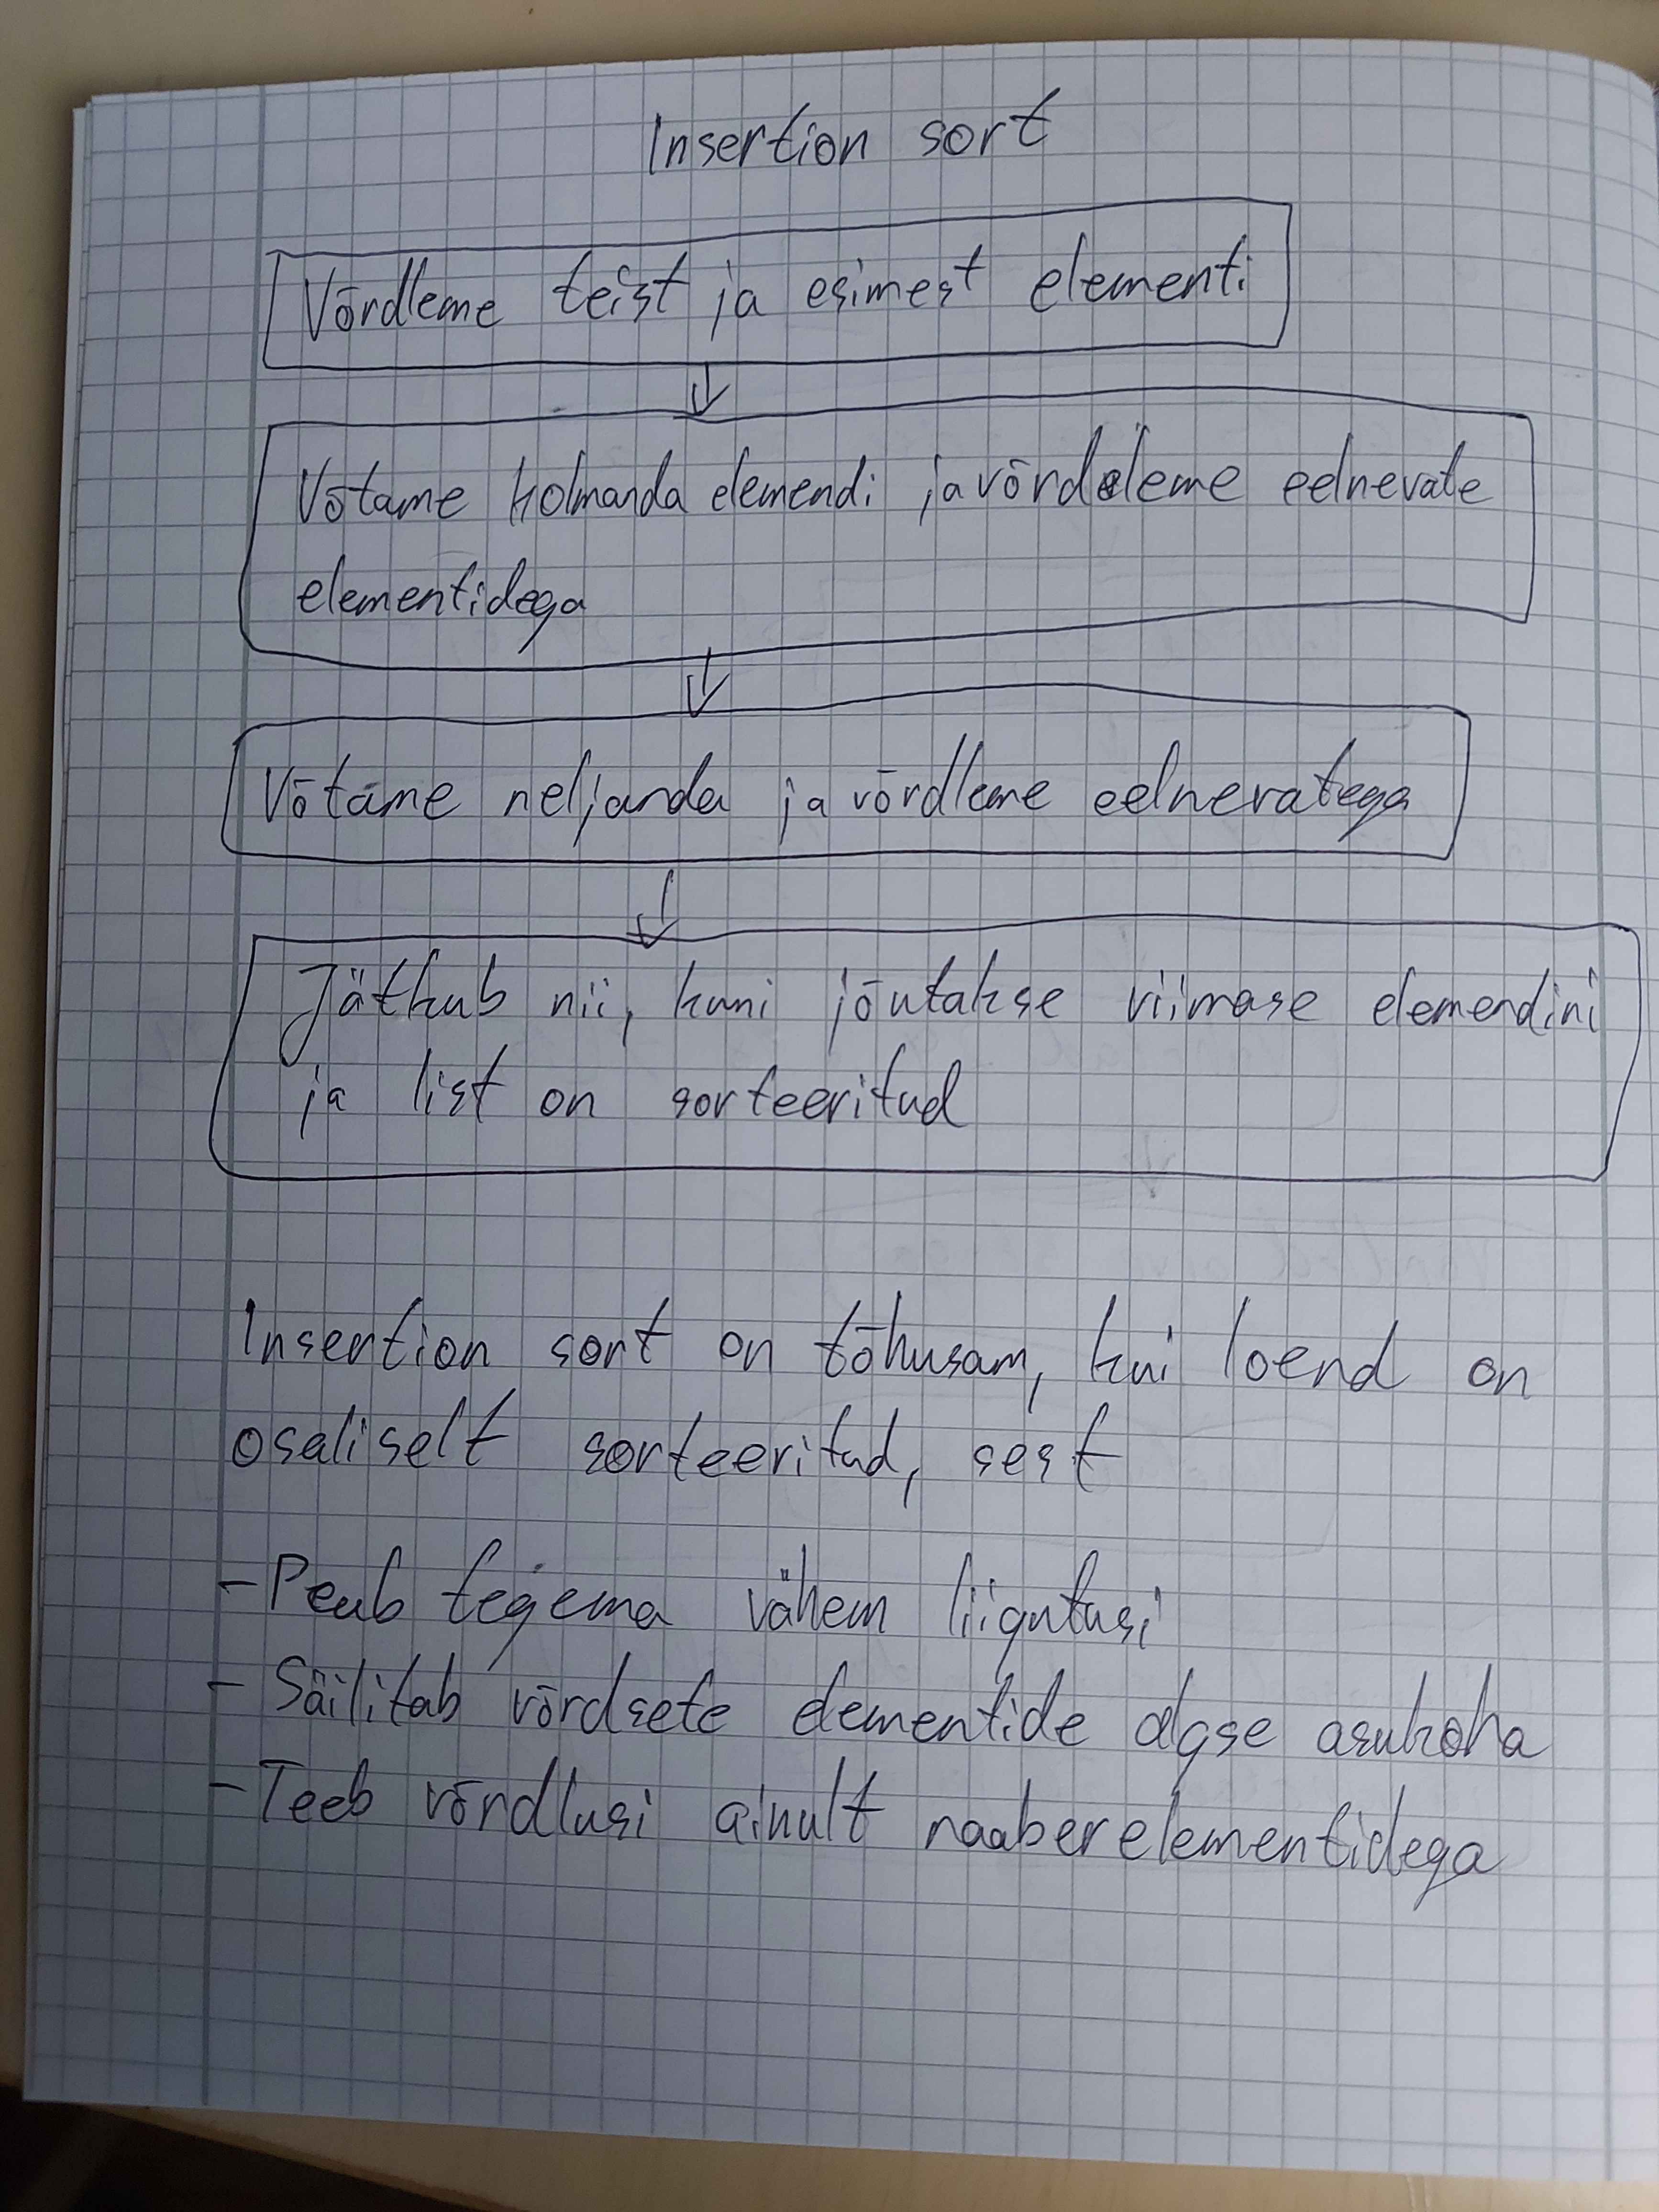 Insertion sort
Võrdleme teist ja esimest elementi
Võtame kolmanda elemendi ja võrdeleme eelnevate
elementidega
Võtame neljanda ja võrdleme eelnevatega
Jätkub nii, kuni jõutakse viimase elemendini
ja list on sorteeritud
Insertion sort on tõhusam, kui loend on
osaliselt sorteeritud, sest
- Peab tegema vähem liigutusi
- Säilitab võrdsete elementide algse asukoha
- Teeb võrdlusi ainult naaberelementidega